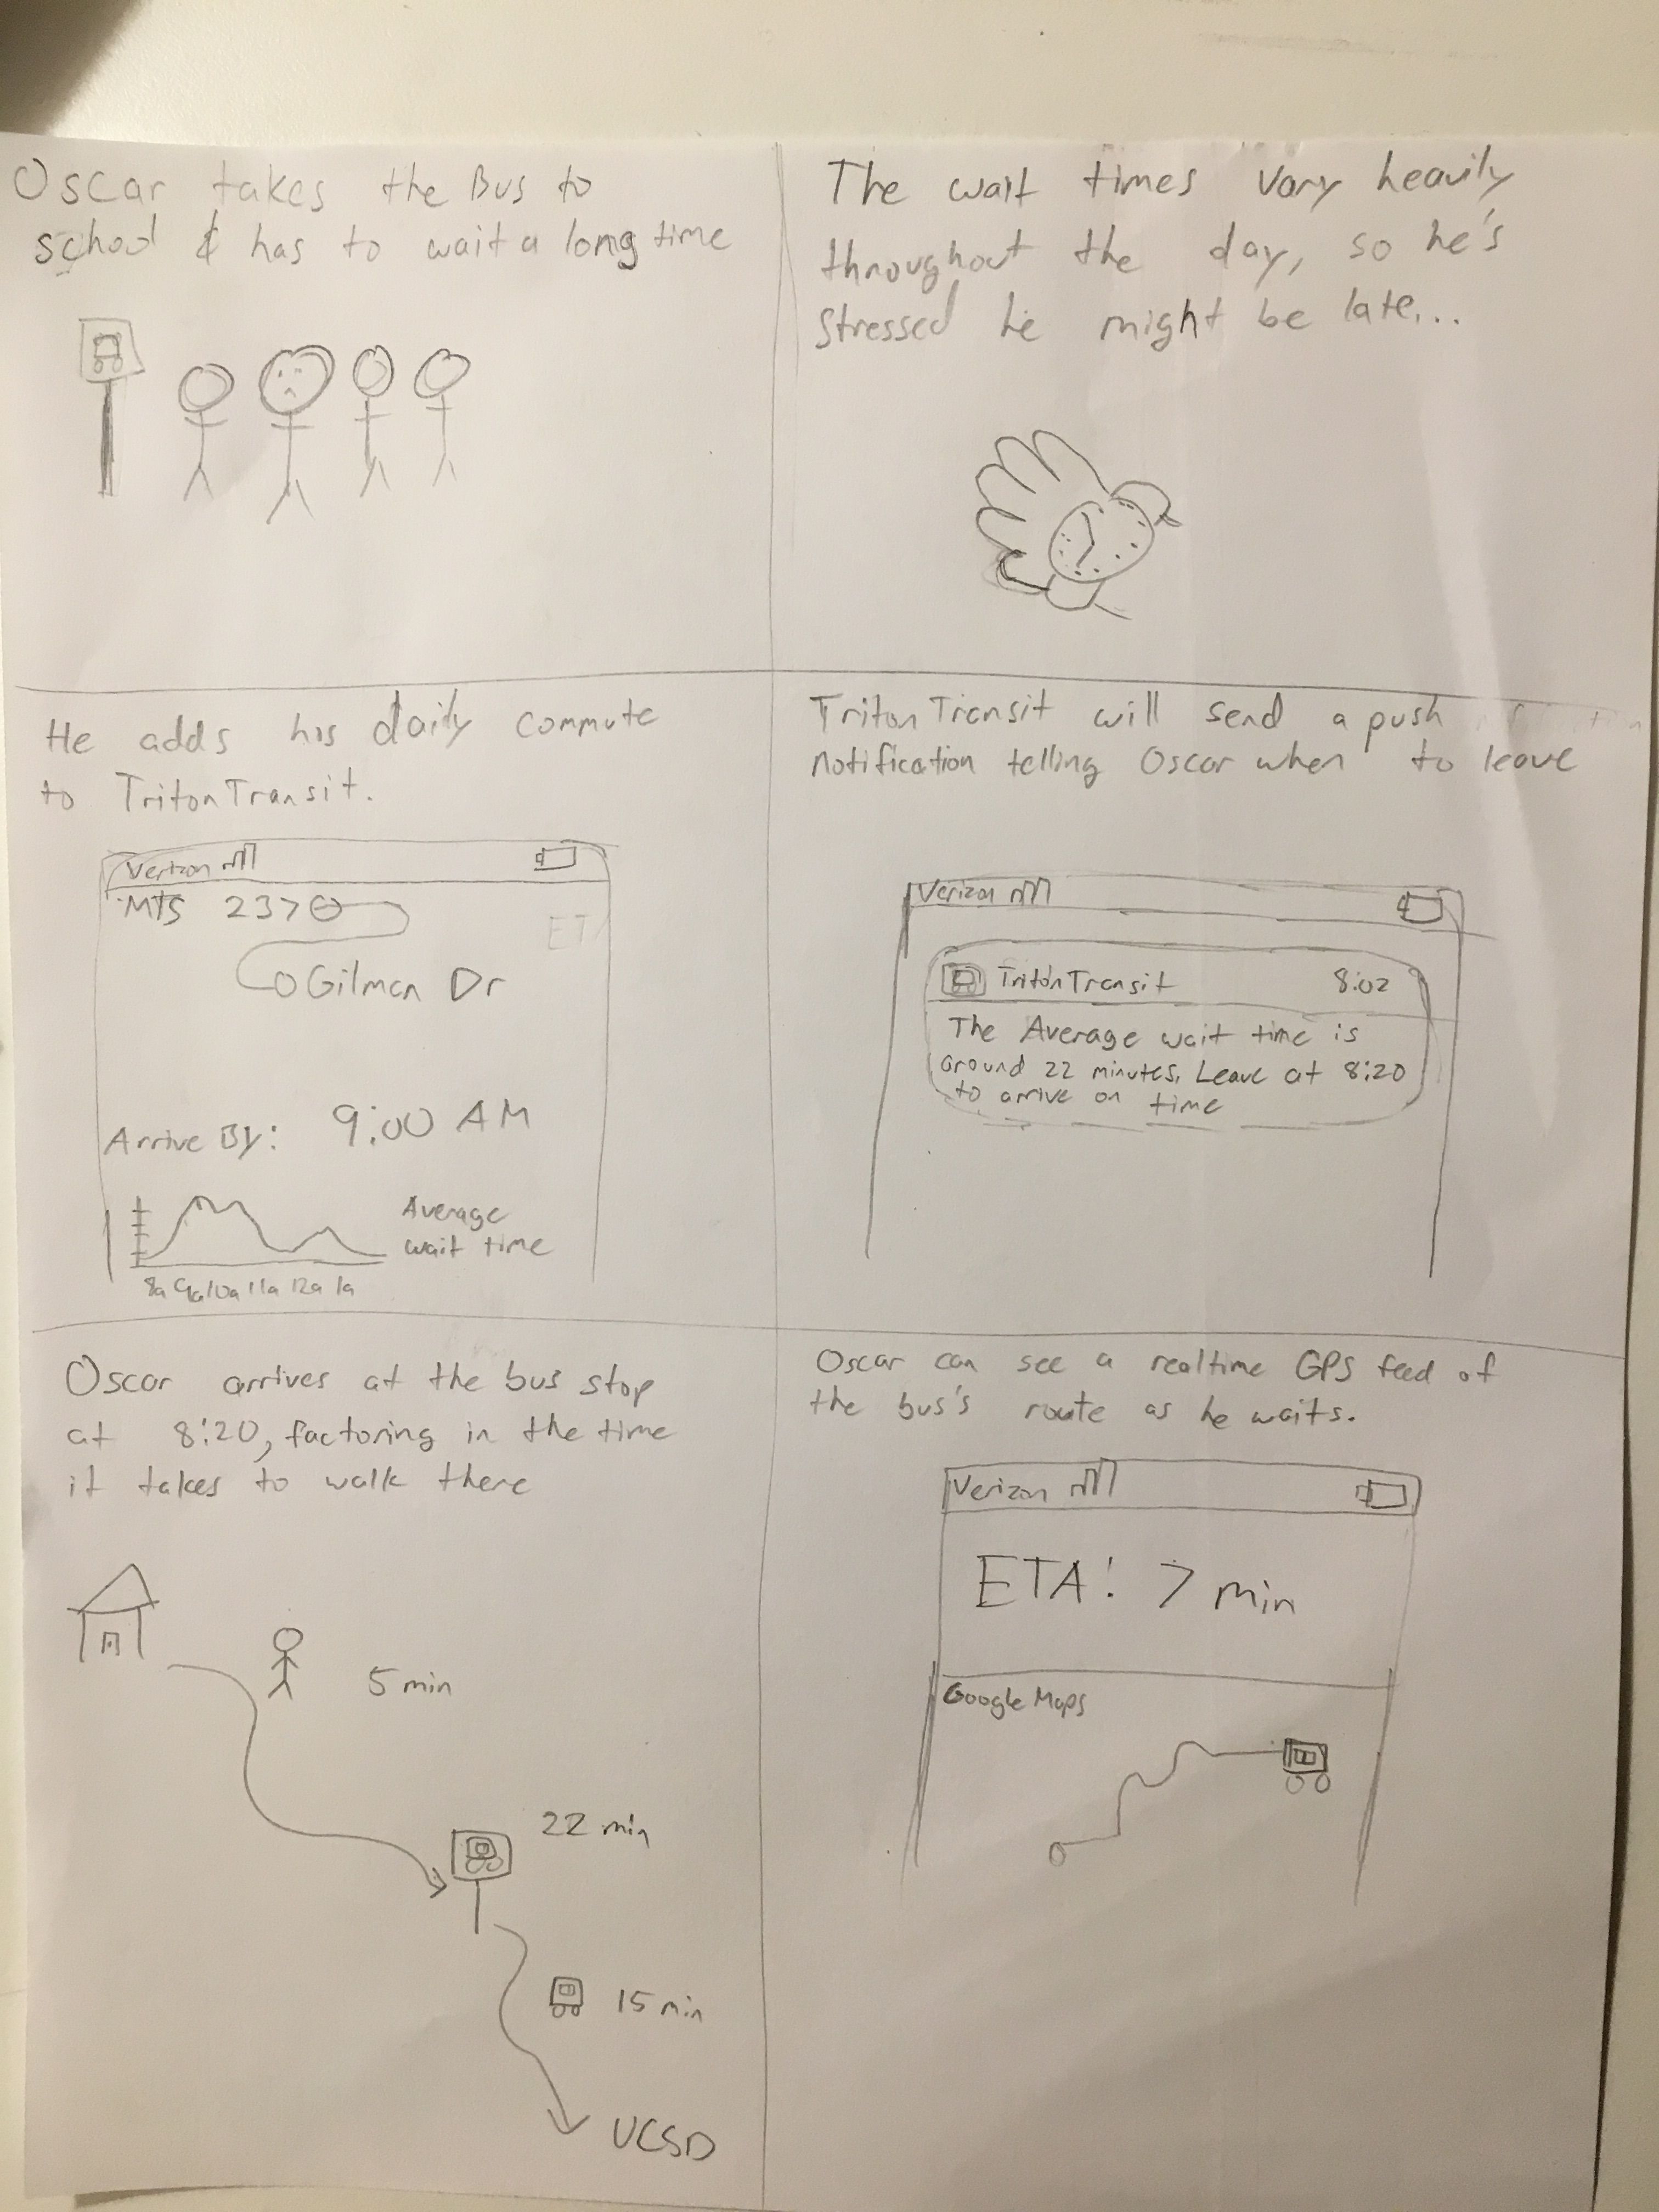 Oscar takes the Bus to
school & has to wait a long time
The wait times vary heavily
throughout the day, so he's
stressed he might be late...
He adds his daily commute
to TritonTransit.
Verizon
MTS 237
ETA
Gilman Dr
Arrive By: 9:00 AM
Average
wait time
8a 9a 10a 11a 12a 1a
TritonTransit will send a push
notification telling Oscar when to leave
Verizon
TritonTransit 8:02
The Average wait time is
around 22 minutes. Leave at 8:20
to arrive on time
Oscar arrives at the bus stop
at 8:20, factoring in the time
it takes to walk there
5 min
22 min
15 min
UCSD
Oscar can see a realtime GPS feed of
the bus's route as he waits.
Verizon
ETA: 7 min
Google Maps